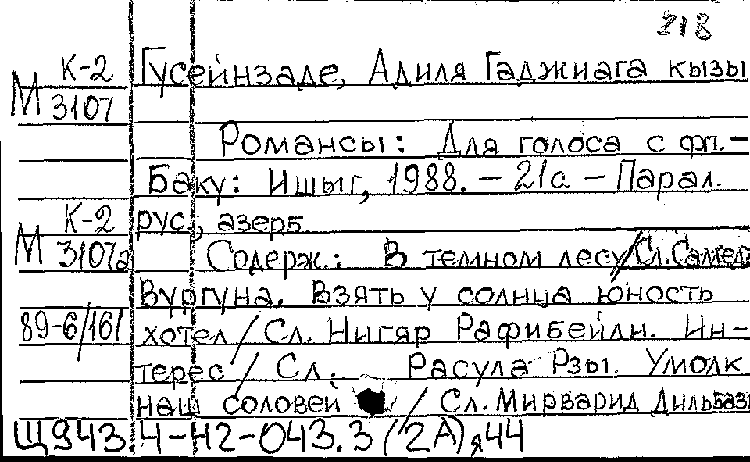 218
К-2 Гусейнзаде, Адиля Гаджиага кызы
М 3107
Романсы: Для голоса с фп.-
Баку: Ишыг, 1988. - 21с - Парал.
К-2 рус., азерб.
М 3107а Содерж.: В темном лесу/Сл. Самеда
Вургуна. Взять у солнца юность
89-6/161 хотел/Сл. Нигяр Рафибейли. Ин-
терес/Сл. Расула Рзы. Умолк
наш соловей /Сл. Мирварид Дильбази
Щ943.4-Н2-043.3(2А)я44